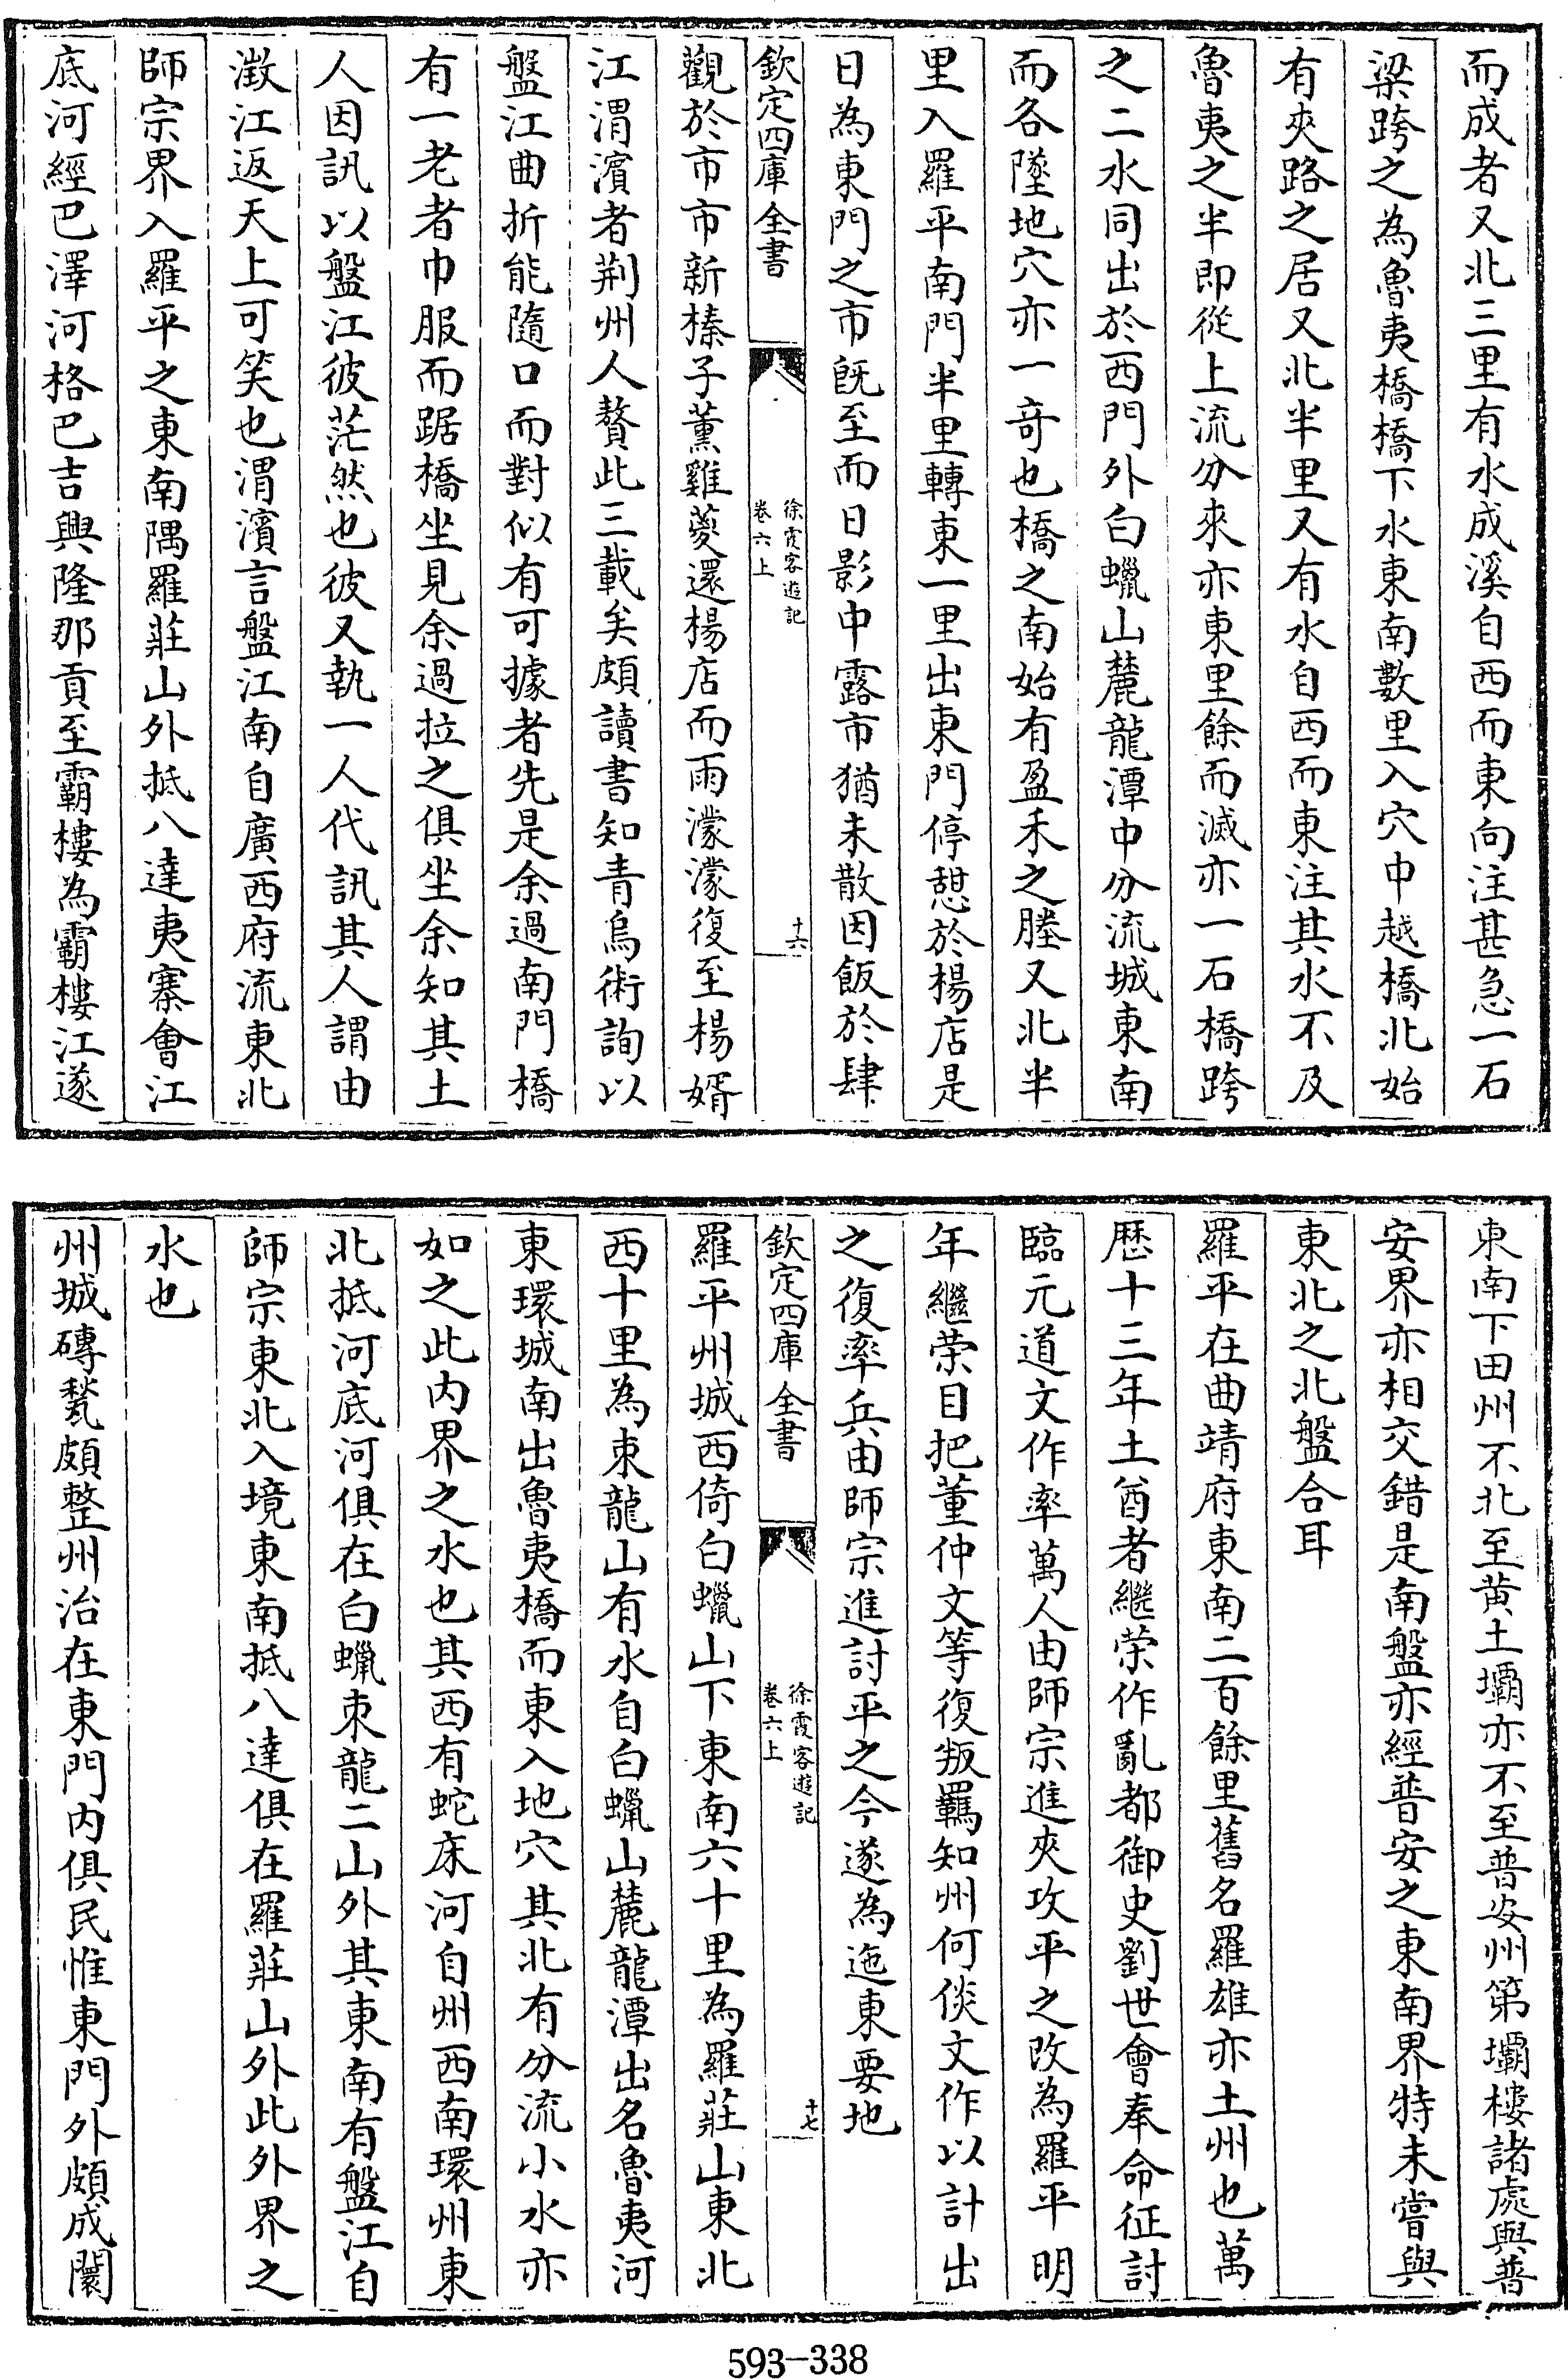 而成者又北三里有水成溪自西而東向注甚急一石
梁跨之為魯夷橋橋下水東南數里入穴中越橋北始
有夾路之居又北半里又有水自西而東注其水不及
魯夷之半即從上流分來亦東里餘而滅亦一石橋跨
之二水同出於西門外白蠟山麓龍潭中分流城東南
而各墜地穴亦一奇也橋之南始有盈禾之塍又北半
里入羅平南門半里轉東一里出東門停憩於楊店是
日為東門之市既至而日影中露市猶未散因飯於肆
欽定四庫全書
徐霞客遊記
卷六上
十六
觀於市市新榛子薰雞葼還楊店而雨濛濛復至楊婿
江渭濱者荆州人贅此三載矣頗讀書知青烏術詢以
盤江曲折能隨口而對似有可據者先是余過南門橋
有一老者巾服而踞橋坐見余過拉之俱坐余知其土
人因訊以盤江彼茫然也彼又執一人代訊其人謂由
澂江返天上可笑也渭濱言盤江南自廣西府流東北
師宗界入羅平之東南隅羅莊山外抵八達夷寨會江
底河經巴澤河格巴吉興隆那貢至霸樓為霸樓江遂
東南下田州不北至黃土壩亦不至普安州第壩樓諸處與普
安界亦相交錯是南盤亦經普安之東南界特未嘗與
東北之北盤合耳
羅平在曲靖府東南二百餘里舊名羅雄亦土州也萬
歷十三年土酋者繼荣作亂都御史劉世會奉命征討
臨元道文作率萬人由師宗進夾攻平之改為羅平明
年繼荣目把董仲文等復叛羈知州何倓文作以計出
之復率兵由師宗進討平之今遂為迤東要地
欽定四庫全書
徐霞客遊記
卷六上
十七
羅平州城西倚白蠟山下東南六十里為羅莊山東北
西十里為束龍山有水自白蠟山麓龍潭出名魯夷河
東環城南出魯夷橋而東入地穴其北有分流小水亦
如之此内界之水也其西有蛇床河自州西南環州東
北抵河底河俱在白蠟束龍二山外其東南有盤江自
師宗東北入境東南抵八達俱在羅莊山外此外界之
水也
州城磚甃頗整州治在東門内俱民惟東門外頗成闤
593-338